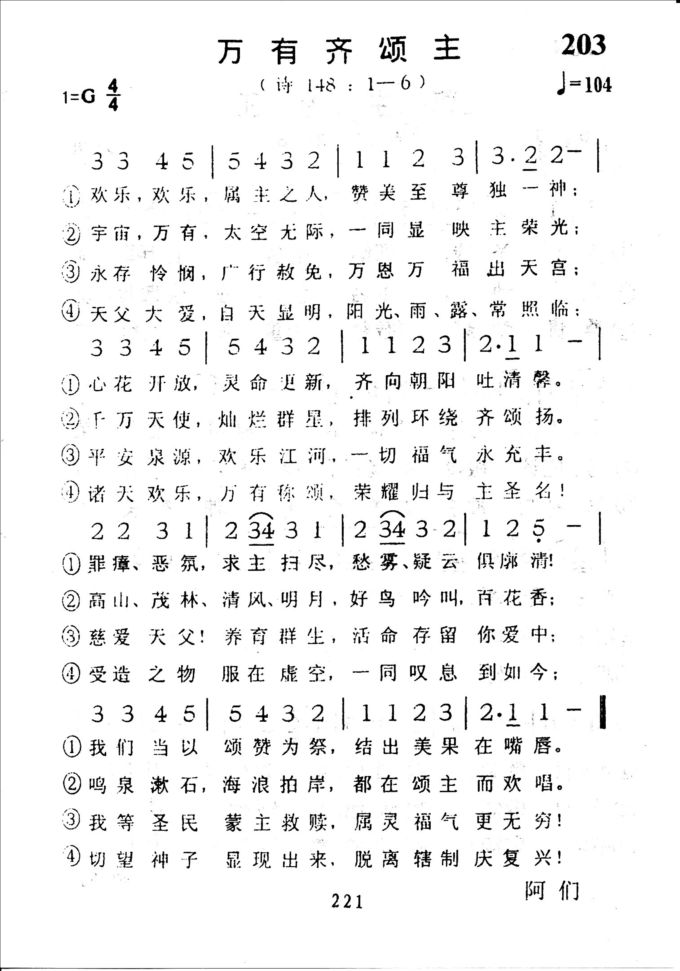 万有齐颂主 203
（诗 148：1—6）
1=G 4/4 ♩=104
3 3 4 5 | 5 4 3 2 | 1 1 2 3 | 3·2 2 – |
①欢乐，欢乐，属主之人，赞美至尊独一神；
②宇宙，万有，太空无际，一同显映主荣光；
③永存怜悯，广行赦免，万恩万福出天宫；
④天父大爱，自天显明，阳光、雨、露、常照临；
3 3 4 5 | 5 4 3 2 | 1 1 2 3 | 2·1 1 – |
①心花开放，灵命更新，齐向朝阳吐清馨。
②千万天使，灿烂群星，排列环绕齐颂扬。
③平安泉源，欢乐江河，一切福气永充丰。
④诸天欢乐，万有称颂，荣耀归与主圣名！
2 2 3 1 | 2 34 3 1 | 2 34 3 2 | 1 2 5 – |
①罪瘴、恶氛，求主扫尽，愁雾、疑云俱廓清！
②高山、茂林、清风、明月，好鸟吟叫，百花香；
③慈爱天父！养育群生，活命存留你爱中；
④受造之物服在虚空，一同叹息到如今；
3 3 4 5 | 5 4 3 2 | 1 1 2 3 | 2·1 1 –
①我们当以颂赞为祭，结出美果在嘴唇。
②鸣泉漱石，海浪拍岸，都在颂主而欢唱。
③我等圣民蒙主救赎，属灵福气更无穷！
④切望神子显现出来，脱离辖制庆复兴！
阿们
221